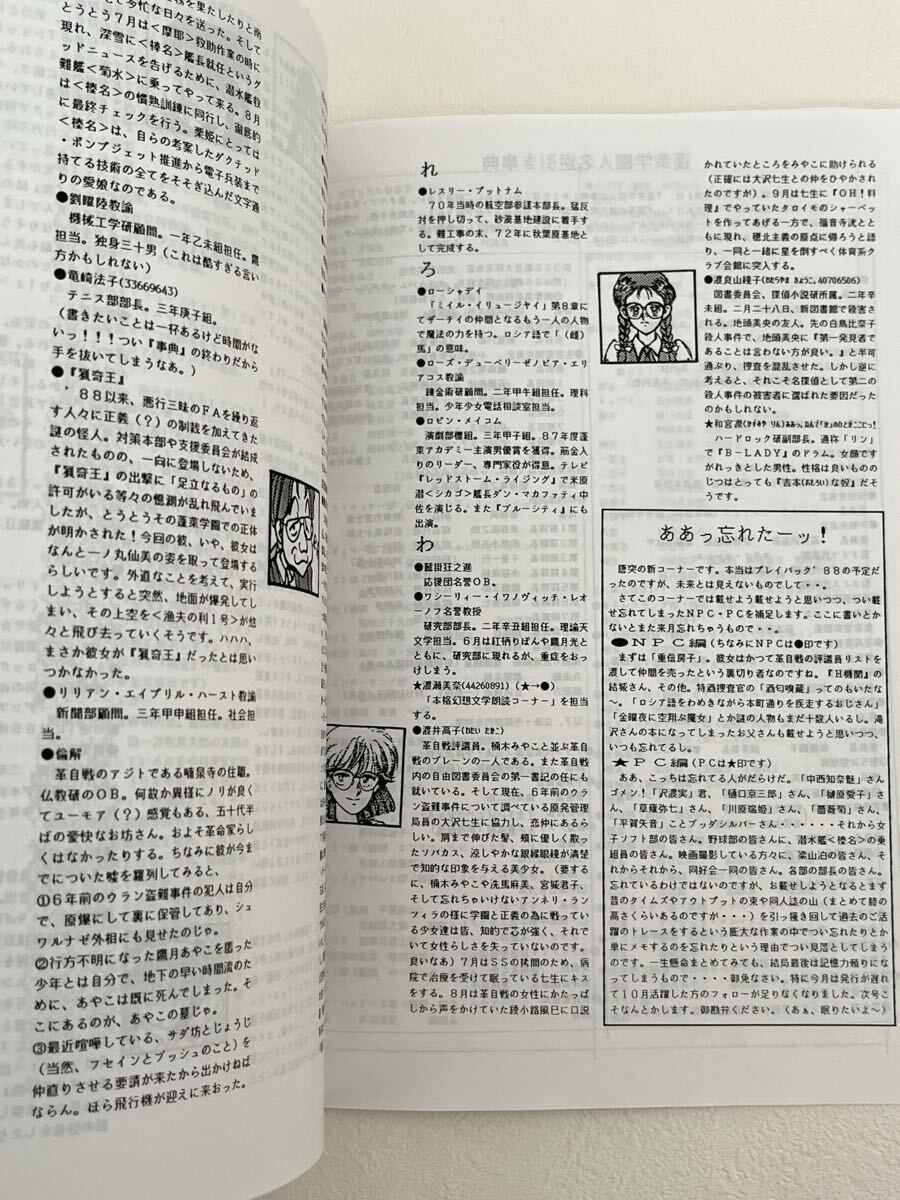 務を果たしたりと南
して多忙な日々を送った。そして
とうとう７月は＜摩耶＞救助作業の時に
現れ、深雪に＜榛名＞艦長就任というグ
ッドニュースを告げるために、潜水艦救
難艦＜菊水＞に乗ってやって来る。８月
は＜榛名＞の慣熟訓練に同行し、徹底的
に最終チェックを行う。栗姫にとっては
＜榛名＞は、自らの考案したダクテッド
・ポンプジェット推進から電子兵装まで
持てる技術の全てをそそぎ込んだ文字通
りの愛娘なのである。
●劉曜陸教諭
機械工学研顧問。一年乙未組担任。農
担当。独身三十男（これは酷すぎる言い
方かもしれない）
●竜崎法子(33669643)
テニス部部長。三年庚子組。
（書きたいことは一杯あるけど時間がな
いっ！！！つい『事典』の終わりだから
手を抜いてしまうなあ。）
●『猟奇王』
８８以来、悪行三昧のＦＡを繰り返
す人々に正義（？）の制裁を加えてきた
謎の怪人。対策本部や支援委員会が結成
されたものの、一向に登場しないため、
『猟奇王』の出撃に「足立なるもの」の
許可がいる等々の憶測が乱れ飛んでいま
したが、とうとうその蓬莱学園での正体
が明かされた！今回の彼、いや、彼女は
なんと一ノ丸仙美の姿を取って登場する
らしいです。外道なことを考えて、実行
しようとすると突然、地面が爆発してし
まい、その上空を＜漁夫の利１号＞が悠
々と飛び去っていくそうです。ハハハ、
まさか彼女が『猟奇王』だったとは思い
つかなかった。
●リリアン・エイプリル・ハースト教諭
新聞部顧問。三年甲申組担任。社会担
当。
●倫解
革自戦のアジトである喃泉寺の住職。
仏教研のＯＢ。何故か異様にノリが良く
てユーモア（？）感覚もある、五十代半
ばの豪快なお坊さん。およそ革命家らし
くはなかったりする。ちなみに彼が今ま
でについた嘘を羅列してみると、
①６年前のウラン盗難事件の犯人は自分
で、原爆にして裏に保管してあり、シュ
ワルナゼ外相にも見せたのじゃ。
②行方不明になった鷹月あやこを匿った
少年とは自分で、地下の早い時間流のた
めに、あやこは既に死んでしまった。そ
こにあるのが、あやこの墓じゃ。
③最近喧嘩している、サダ坊とじょうじ
（当然、フセインとブッシュのこと）を
仲直りさせる要請が来たから出かけねば
ならん。ほら飛行機が迎えに来おった。
れ
●レスリー・プットナム
７０年当時の航空部参謀本部長。猛反
対を押し切って、砂漠基地建設に着手す
る。難工事の末、７２年に秋葉原基地と
して完成する。
ろ
●ローシャデイ
「ミイル・イリュージヤイ」第８章に
てザーチイの仲間となるもう一人の人物
で魔法の力を持つ。ロシア語で「（雌）
馬」の意味。
●ローズ・デューベリーゼノビア・エリ
アコス教諭
錬金術研顧問。二年甲午組担任。理科
担当。少年少女電話相談室担当。
●ロビン・メイコム
演劇部櫻組。三年甲子組。８７年度蓬
莱アカデミー主演男優賞を獲得。筋金入
りのリーダー、専門家役が得意。テレビ
『レッドストーム・ライジング』で米原
潜＜シカゴ＞艦長ダン・マカファティ中
佐を演じる。また『ブルーシティ』にも
出演。
わ
●藍掛狂之進
応援団名誉ＯＢ。
●ワシーリィ・イワノヴィッチ・レオ
ーノフ名誉教授
研究部部長。二年辛丑組担任。理論天
文学担当。６月は紅栖りばんや鷹月光と
ともに、研究部に現れるが、重症をおっ
けします。
★渡瀰美奈(44260891)（★→●）
「本格幻想文学朗読コーナー」を担当
する。
●渡井高子(わたい たかこ)
革自戦評議員。楠木みやこと並ぶ革自
戦のブレーンの一人である。また革自戦
内の自由図書委員会の第一書記の任にも
就いている。そして現在、６年前のウラ
ン盗難事件について調べている原発管理
局員の大沢七生に協力し、恋仲にあるら
しい。肩まで伸びた髪、頬に優しく散っ
たソバカス、涼しやかな銀縁眼鏡が清楚
で知的な印象を与える美少女。（要する
に、楠木みやこや洗馬麻美、宮城君子、
そして忘れちゃいけないアンネリ・ラン
ツィラの様に学園と正義の為に戦ってい
る少女達は皆、知的で芯が強く、それで
いて女性らしさを失っていないのです。
良いなあ）７月はＳＳの拷問のため、病
院で治療を受けて眠っている七生にキス
をする。８月は革自戦の女性にかたっぱ
しから声をかけていた綾小路風巳に口説
かれていたところをみやこに助けられる
（正確には大沢七生との仲をひやかされ
たのですが）。９月は七生に『ＯＨ！料
理』でやっていたタロイモのシャーベッ
トを作ってあげる一方で、福音寺洸とと
もに現れ、穂北主義の原点に帰ろうと語
り、一同と一緒に星を倒すべく体育系ク
ラブ会館に突入する。
●渡良山綾子(わたらやま きょうこ,40706506)
図書委員会、探偵小説研所属。二年辛
未組。二月二十八日、新図書館で殺害さ
れる。地頭美央の友人。先の白鳥比奈子
殺人事件で、地頭美央に『第一発見者で
あることは言わない方が良い。』と半可
通ぶり、捜査を混乱させた。しかし逆に
考えると、それこそ名探偵として第二の
殺人事件の被害者に選ばれた要因だった
のかもしれない。
ハードロック研副部長。通称「リン」
で『Ｂ－ＬＡＤＹ』のドラム。女顔です
がれっきとした男性。性格は良いものの
じつはとっても『吉本(おもろい)な奴』だそ
うです。
ああっ忘れたーッ！
唐突の新コーナーです。本当はプレイバック'８８の予定だ
ったのですが、未来とは見えないものでして・・。
さてこのコーナーでは載せよう載せようと思いつつ、つい載
せ忘れてしまったＮＰＣ・ＰＣを補足します。ここに書いとか
ないとまた来月忘れちゃうもので・・。
●ＮＰＣ編（ちなみにＮＰＣは●印です）
まずは「重信房子」。彼女はかつて革自戦の評議員リストを
渡して仲間を売ったという裏切り者なのですね。『Ｈ機関』の
結城さん、その他。特酒捜査官の「酒匂嗅蔵」ってのもいたな
～。「ロシア語をわめきながら本町通りを疾走するおじさん」
「金曜夜に空翔ぶ魔女」とか謎の人物もまだ十数人いるし。滝
沢の本になってしまったお父さんも載せようと思いつつ、
いつも忘れてるし。
★ＰＣ編（ＰＣは★印です）
ああ、こっちは忘れてる人がだらけだ。「中西知奈魅」さん
ゴメン！「沢濃実」君、「樋口京三郎」さん、「榊原愛子」さ
ん、「草薙弥七」さん、「川原瑞姫」さん、「薔薇菊」さん、
「平賀矢音」ことブッダシルバーさん・・・・・・それから女
子ソフト部の皆さん。野球部の皆さんに、潜水艦＜榛名＞の乗
組員の皆さん。映画撮影している方々に、梁山泊の皆さん、そ
れからそれから、同好会一同の皆さん。各部の部長の皆さん。
忘れているわけではないのですが、お載せしようとなるとます
昔のタイムズやアウトプットの束や同人誌の山（まとめて膝の
高さくらいあるのですが・・・）を引っ掻き回して過去のご活
躍のトレースをするという厖大な作業の中でつい忘れたりとか
単にメモするのを忘れたりという理由でつい見落としてしまう
のです。一生懸命まとめてみても、結局最後は記憶力頼りにな
ってしまうもので・・・・御免なさい。特に今月は発行が遅れ
て１０月活躍した方のフォローが足りなくなりました。次号こ
そなんとかします。御勘弁ください。（あぁ、眠りたいよ～）